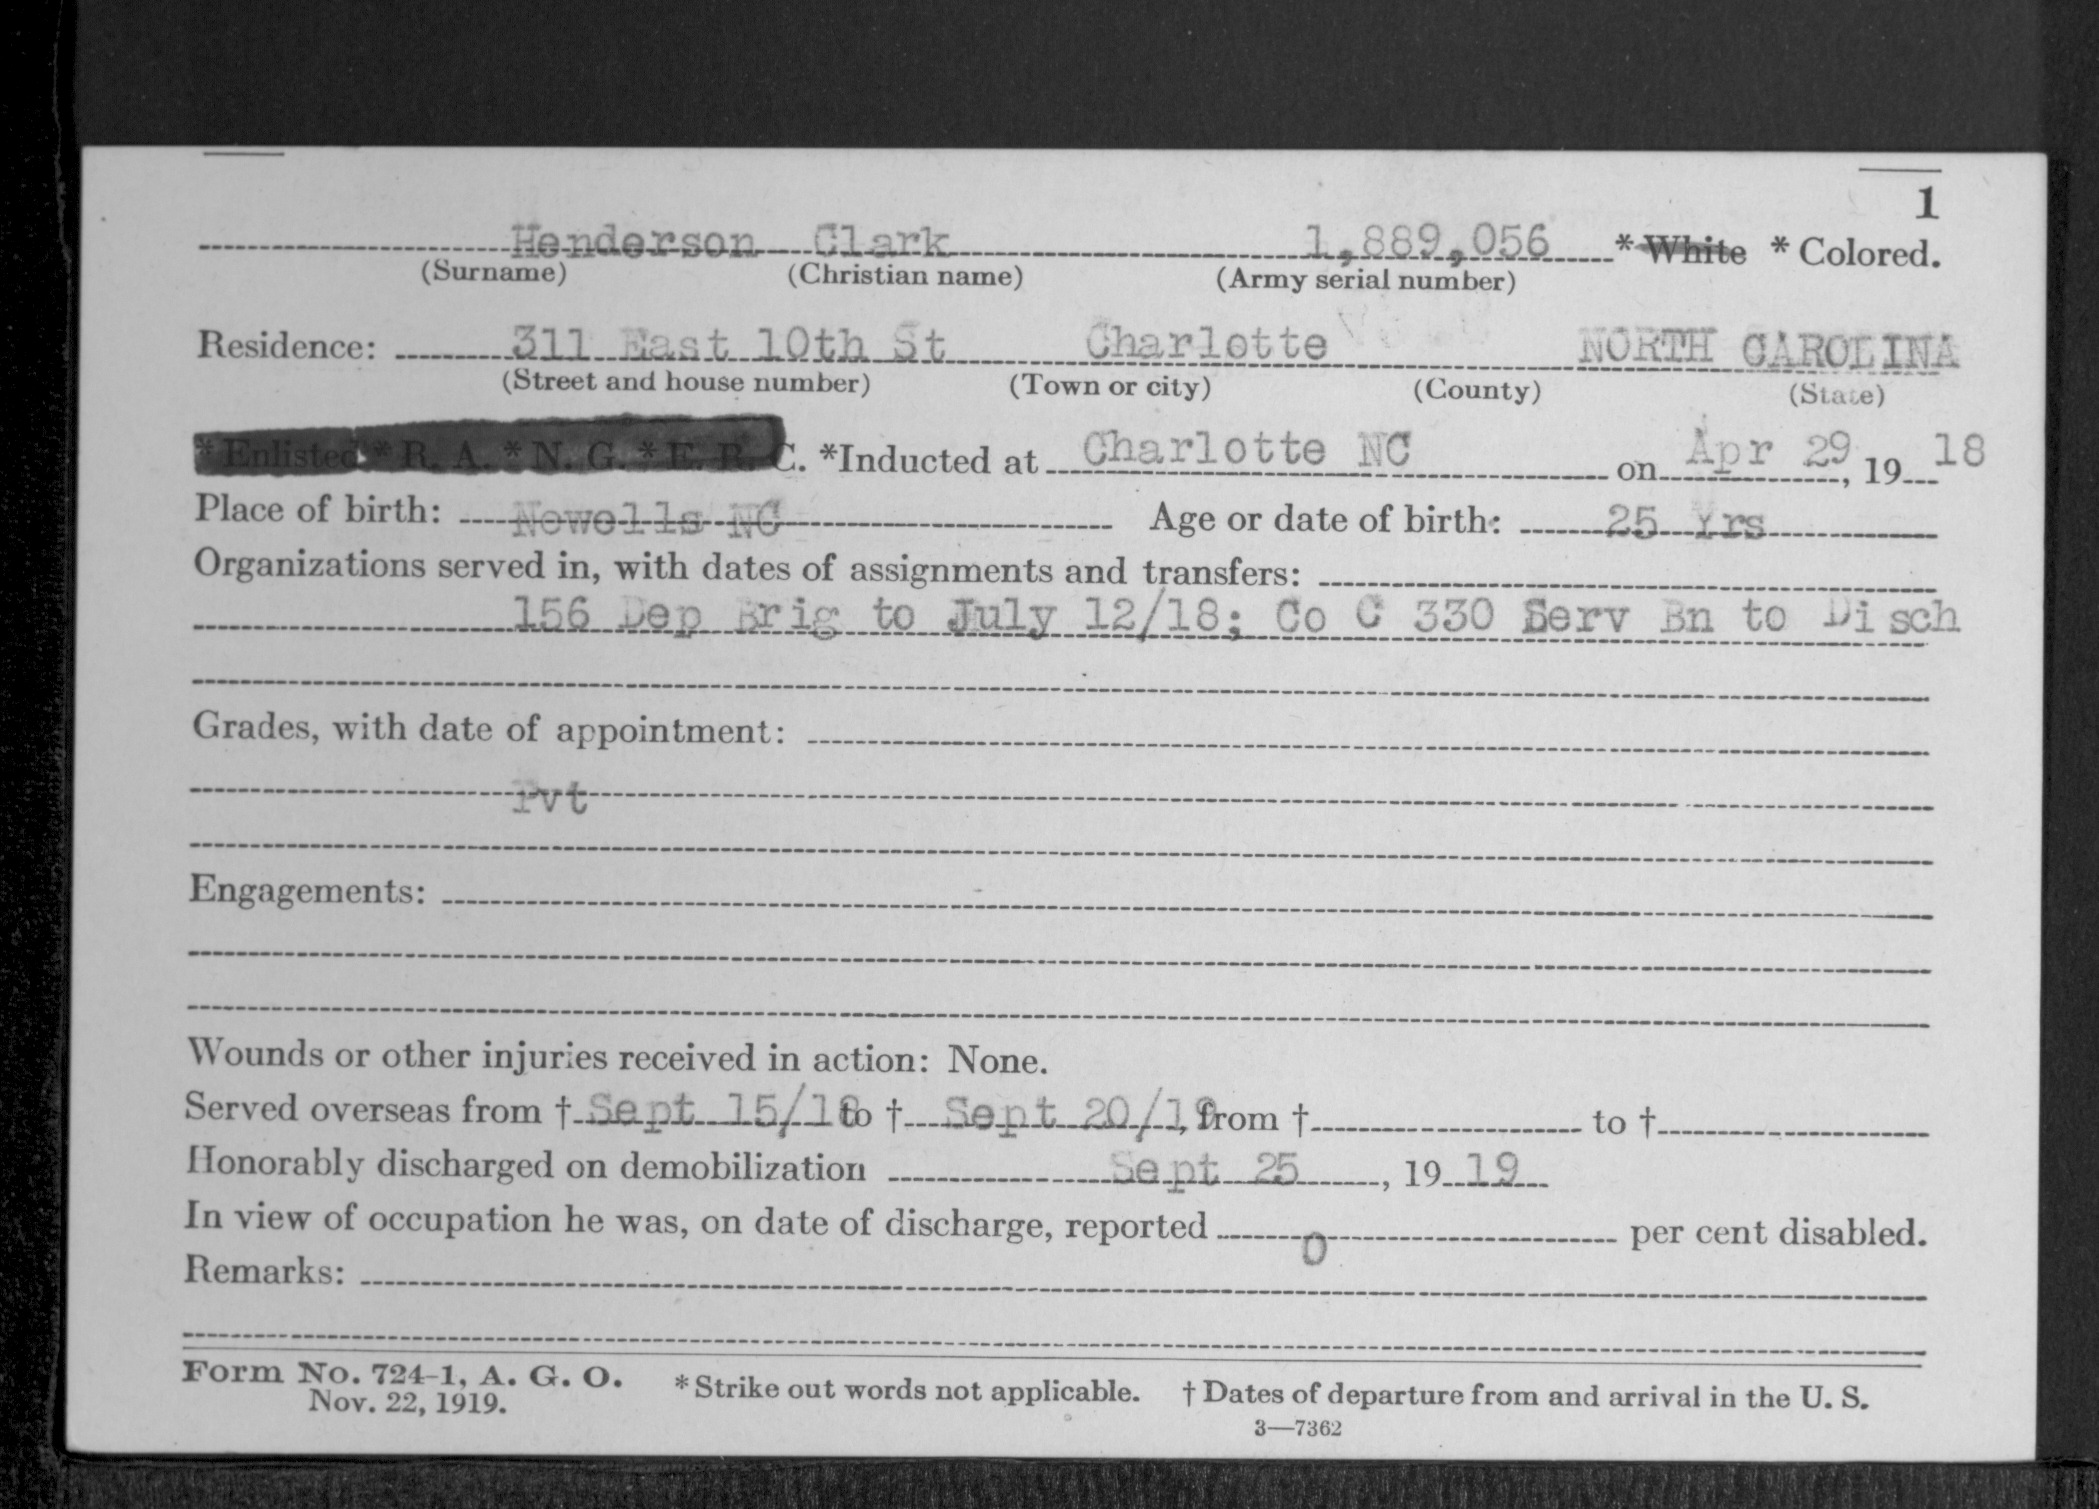 1
Henderson Clark 1,889,056 * White * Colored.
(Surname) (Christian name) (Army serial number)
Residence: 311 East 10th St Charlotte NORTH CAROLINA
(Street and house number) (Town or city) (County) (State)
* Enlisted * R. A. * N. G. * E. R. C. *Inducted at Charlotte NC on Apr 29, 19 18
Place of birth: Newells NC Age or date of birth: 25 Yrs
Organizations served in, with dates of assignments and transfers:
156 Dep Brig to July 12/18; Co C 330 Serv Bn to Disch
Grades, with date of appointment:
Pvt
Engagements:
Wounds or other injuries received in action: None.
Served overseas from † Sept 15/18 to † Sept 20/19, from † to †
Honorably discharged on demobilization Sept 25, 19 19
In view of occupation he was, on date of discharge, reported 0 per cent disabled.
Remarks:
Form No. 724-1, A. G. O. * Strike out words not applicable. † Dates of departure from and arrival in the U. S.
Nov. 22, 1919.
3—7362